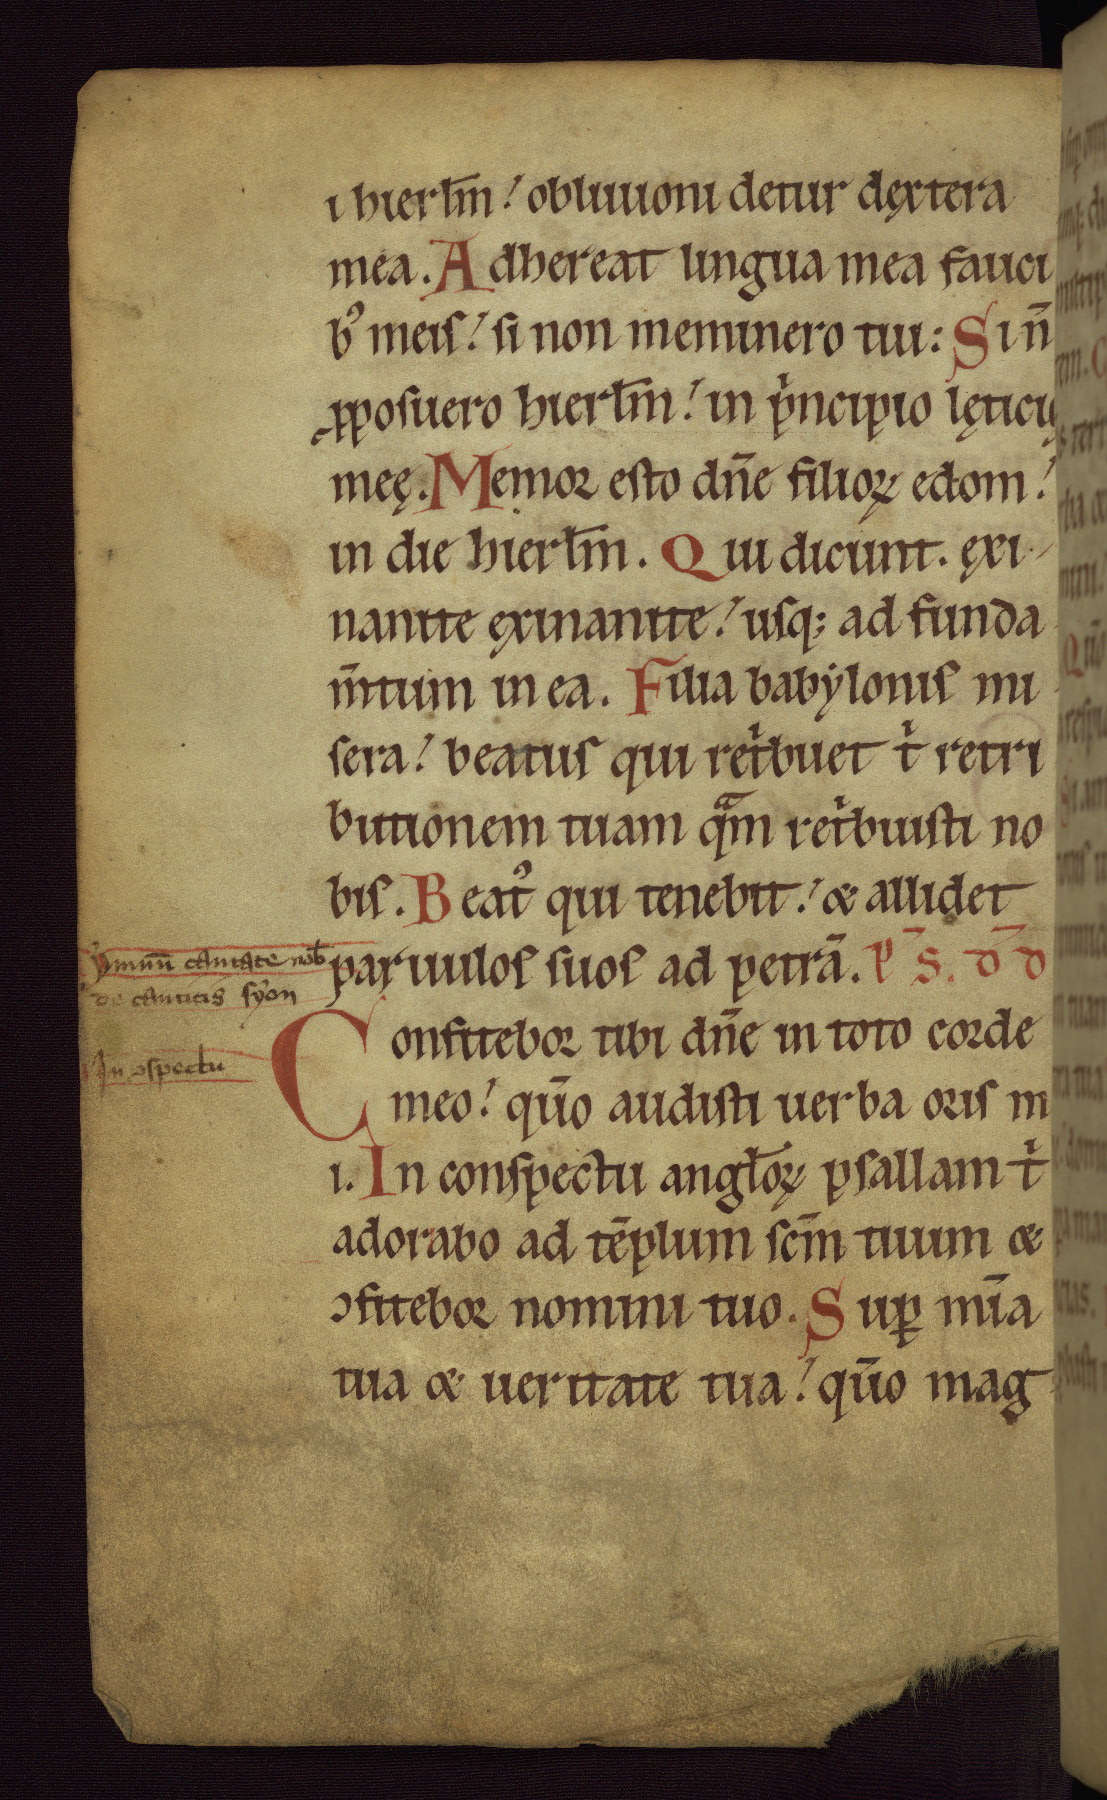 i hierl̄m! obliuioni detur dęxtera
mea. Adhereat lingua mea fauci
bꝰ meis! si non meminero tui: Si n̄
ꝓposuero hierl̄m! in pͥncipio lęticię
meę. Memor esto dn̄e filioꝝ edom!
in die hierl̄m. Qui dicunt. ęxi-
nanite ęxinanite! usq; ad funda
m̄tum in ea. Filia babẏlonis mi
sera! beatus qui retͥbuet tͥ retri
butionem tuam qᷓm retͥbuisti no
bis. Beatꝰ qui tenebit! & allidet
paruulos suos ad petrā. P̄ S. D̄ D
ẏmnū cantate nob̄
de canticis sẏon
Confitebor tibi dn̄e in toto corde
In ꝯspectu
meo! qūo audisti uerba oris m
i. In conspectu angl̄oꝝ psallam tͥ
adorabo ad tēplum sc̄m tuum &
ꝯfitebor nomini tuo. Suꝑ mīa
tua & ueritate tua! qūo mag